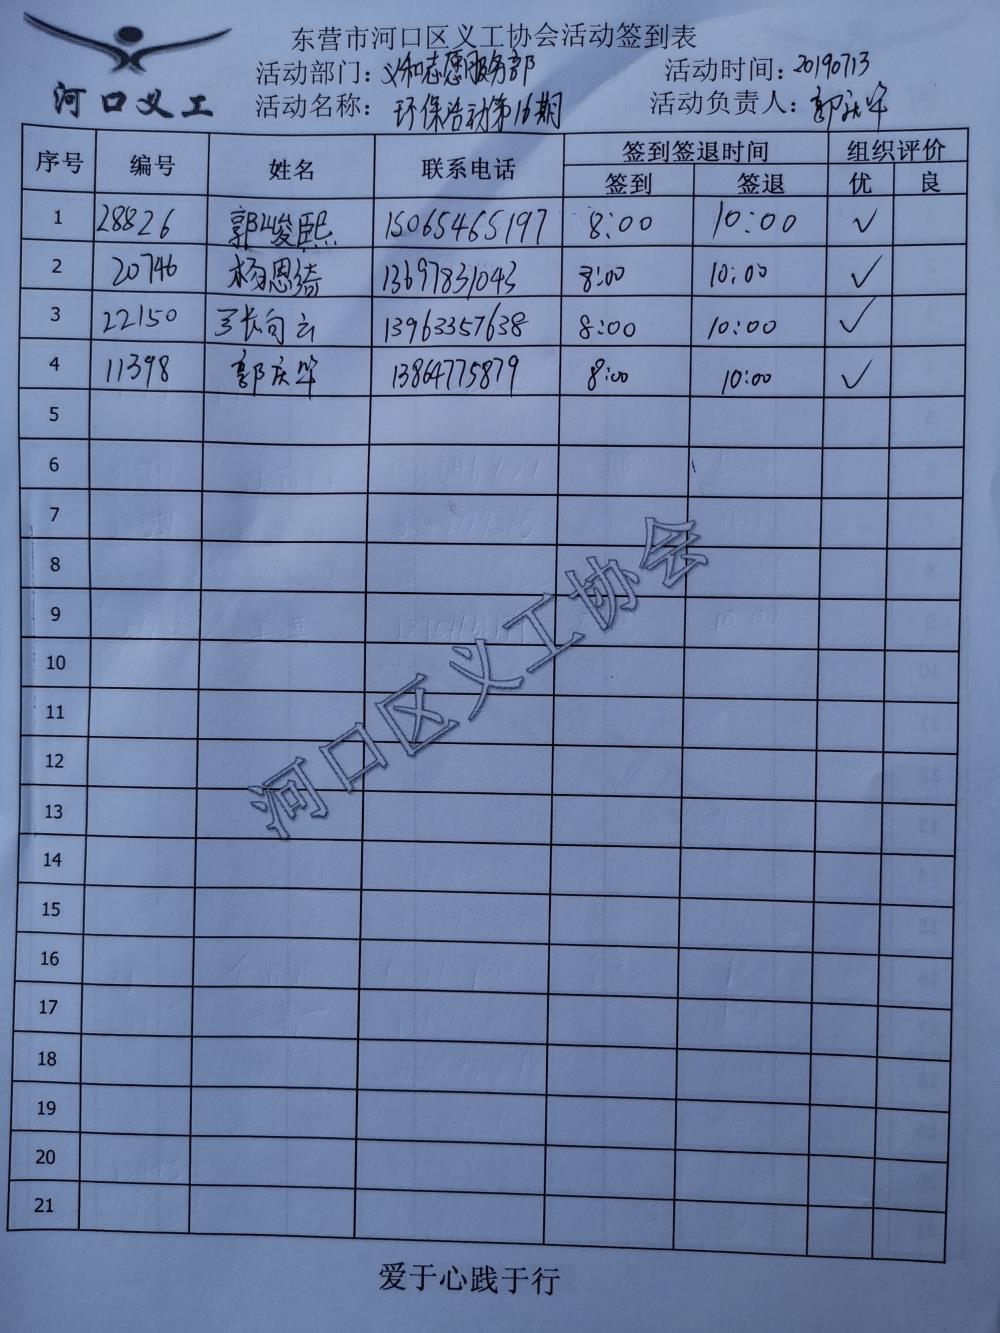 东营市河口区义工协会活动签到表
河口义工
活动部门：义和志愿服务部 活动时间：20190713
活动名称：环保活动第16期 活动负责人：郭庆华
序号 编号 姓名 联系电话 签到签退时间 组织评价
签到 签退 优 良
1 28826 郭峻熙 15065465197 8:00 10:00 ✓
2 20746 杨恩绮 13697831043 8:00 10:00 ✓
3 22150 张向云 13963357638 8:00 10:00 ✓
4 11398 郭庆华 13864775879 8:00 10:00 ✓
5
6
7
8
9
10
11
12
13
14
15
16
17
18
19
20
21
河口区义工协会
爱于心践于行